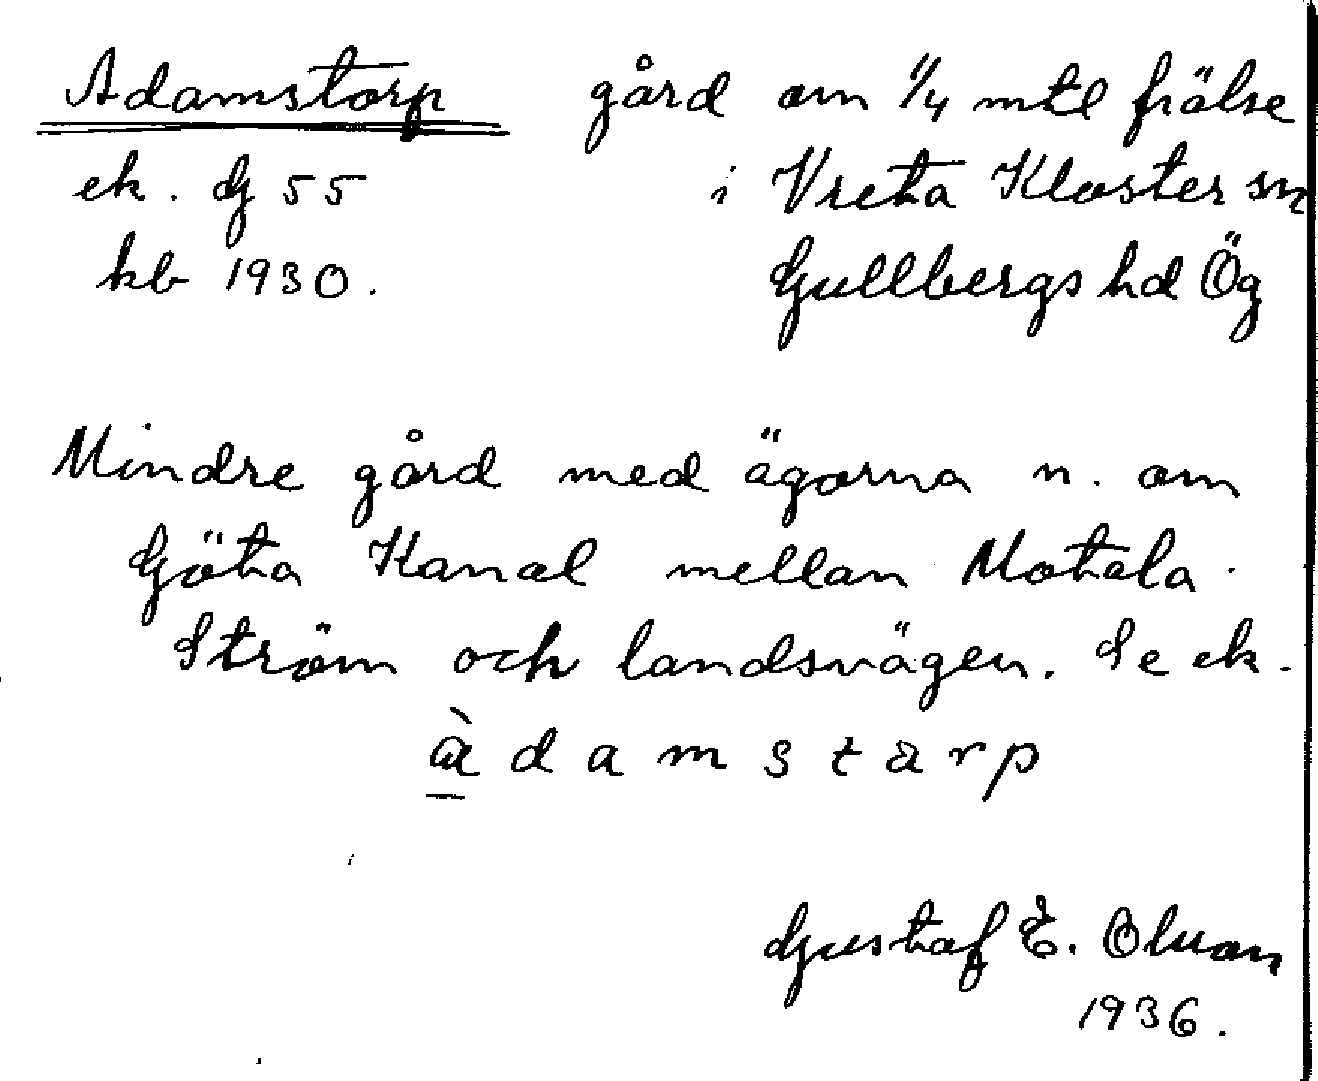 Adamstorp gård om 1/4 mtl frälse
ek. dj 55 i Vreta Kloster sn
kb 1930. Gullbergs hd Ög
Mindre gård med ägorna n. om
Göta Kanal mellan Motala
Ström och landsvägen. Se ek.
àdamstarp
Gustaf E. Olsson
1936.